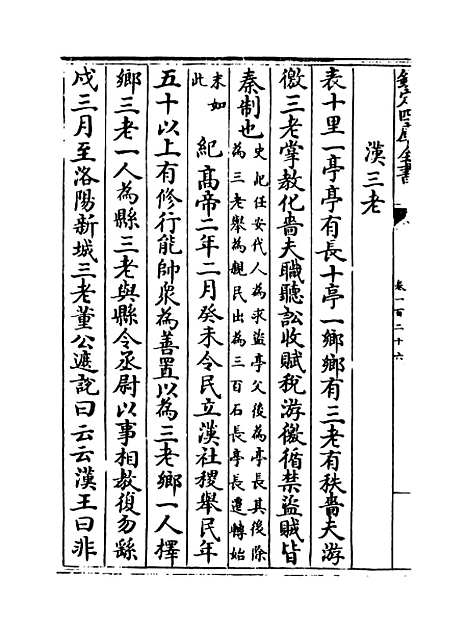 欽定四庫全書
卷一百二十六
漢三老
表十里一亭亭有長十亭一鄉鄉有三老有秩嗇夫游
徼三老掌教化嗇夫職聽訟收賦稅游徼循禁盜賊皆
秦制也
史記任安代人為求盜亭父後為亭長其後除
為三老舉為親民出為三百石長亭長遷轉始
末如
此
紀高帝二年二月癸未令民立漢社稷舉民年
五十以上有修行能帥衆為善置以為三老鄉一人擇
鄉三老一人為縣三老與縣令丞尉以事相教復勿繇
戍三月至洛陽新城三老董公遮說曰云云漢王曰非